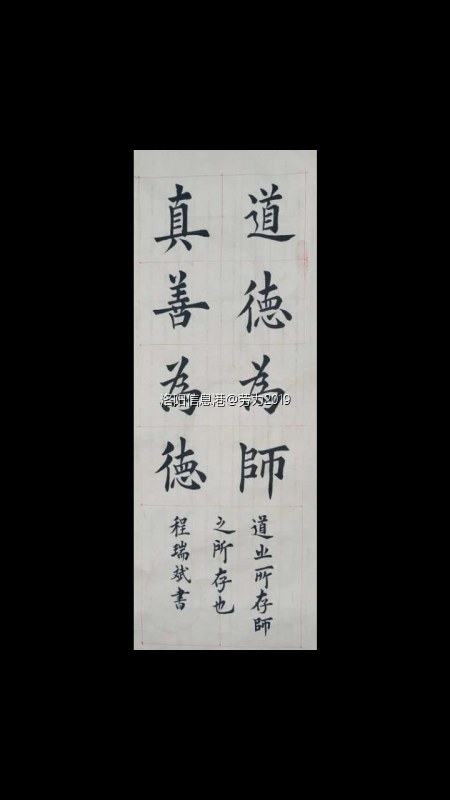 道德為師
真善為德
道之所存師
之所存也
程瑞斌書
洛阳信息港@劳力2019